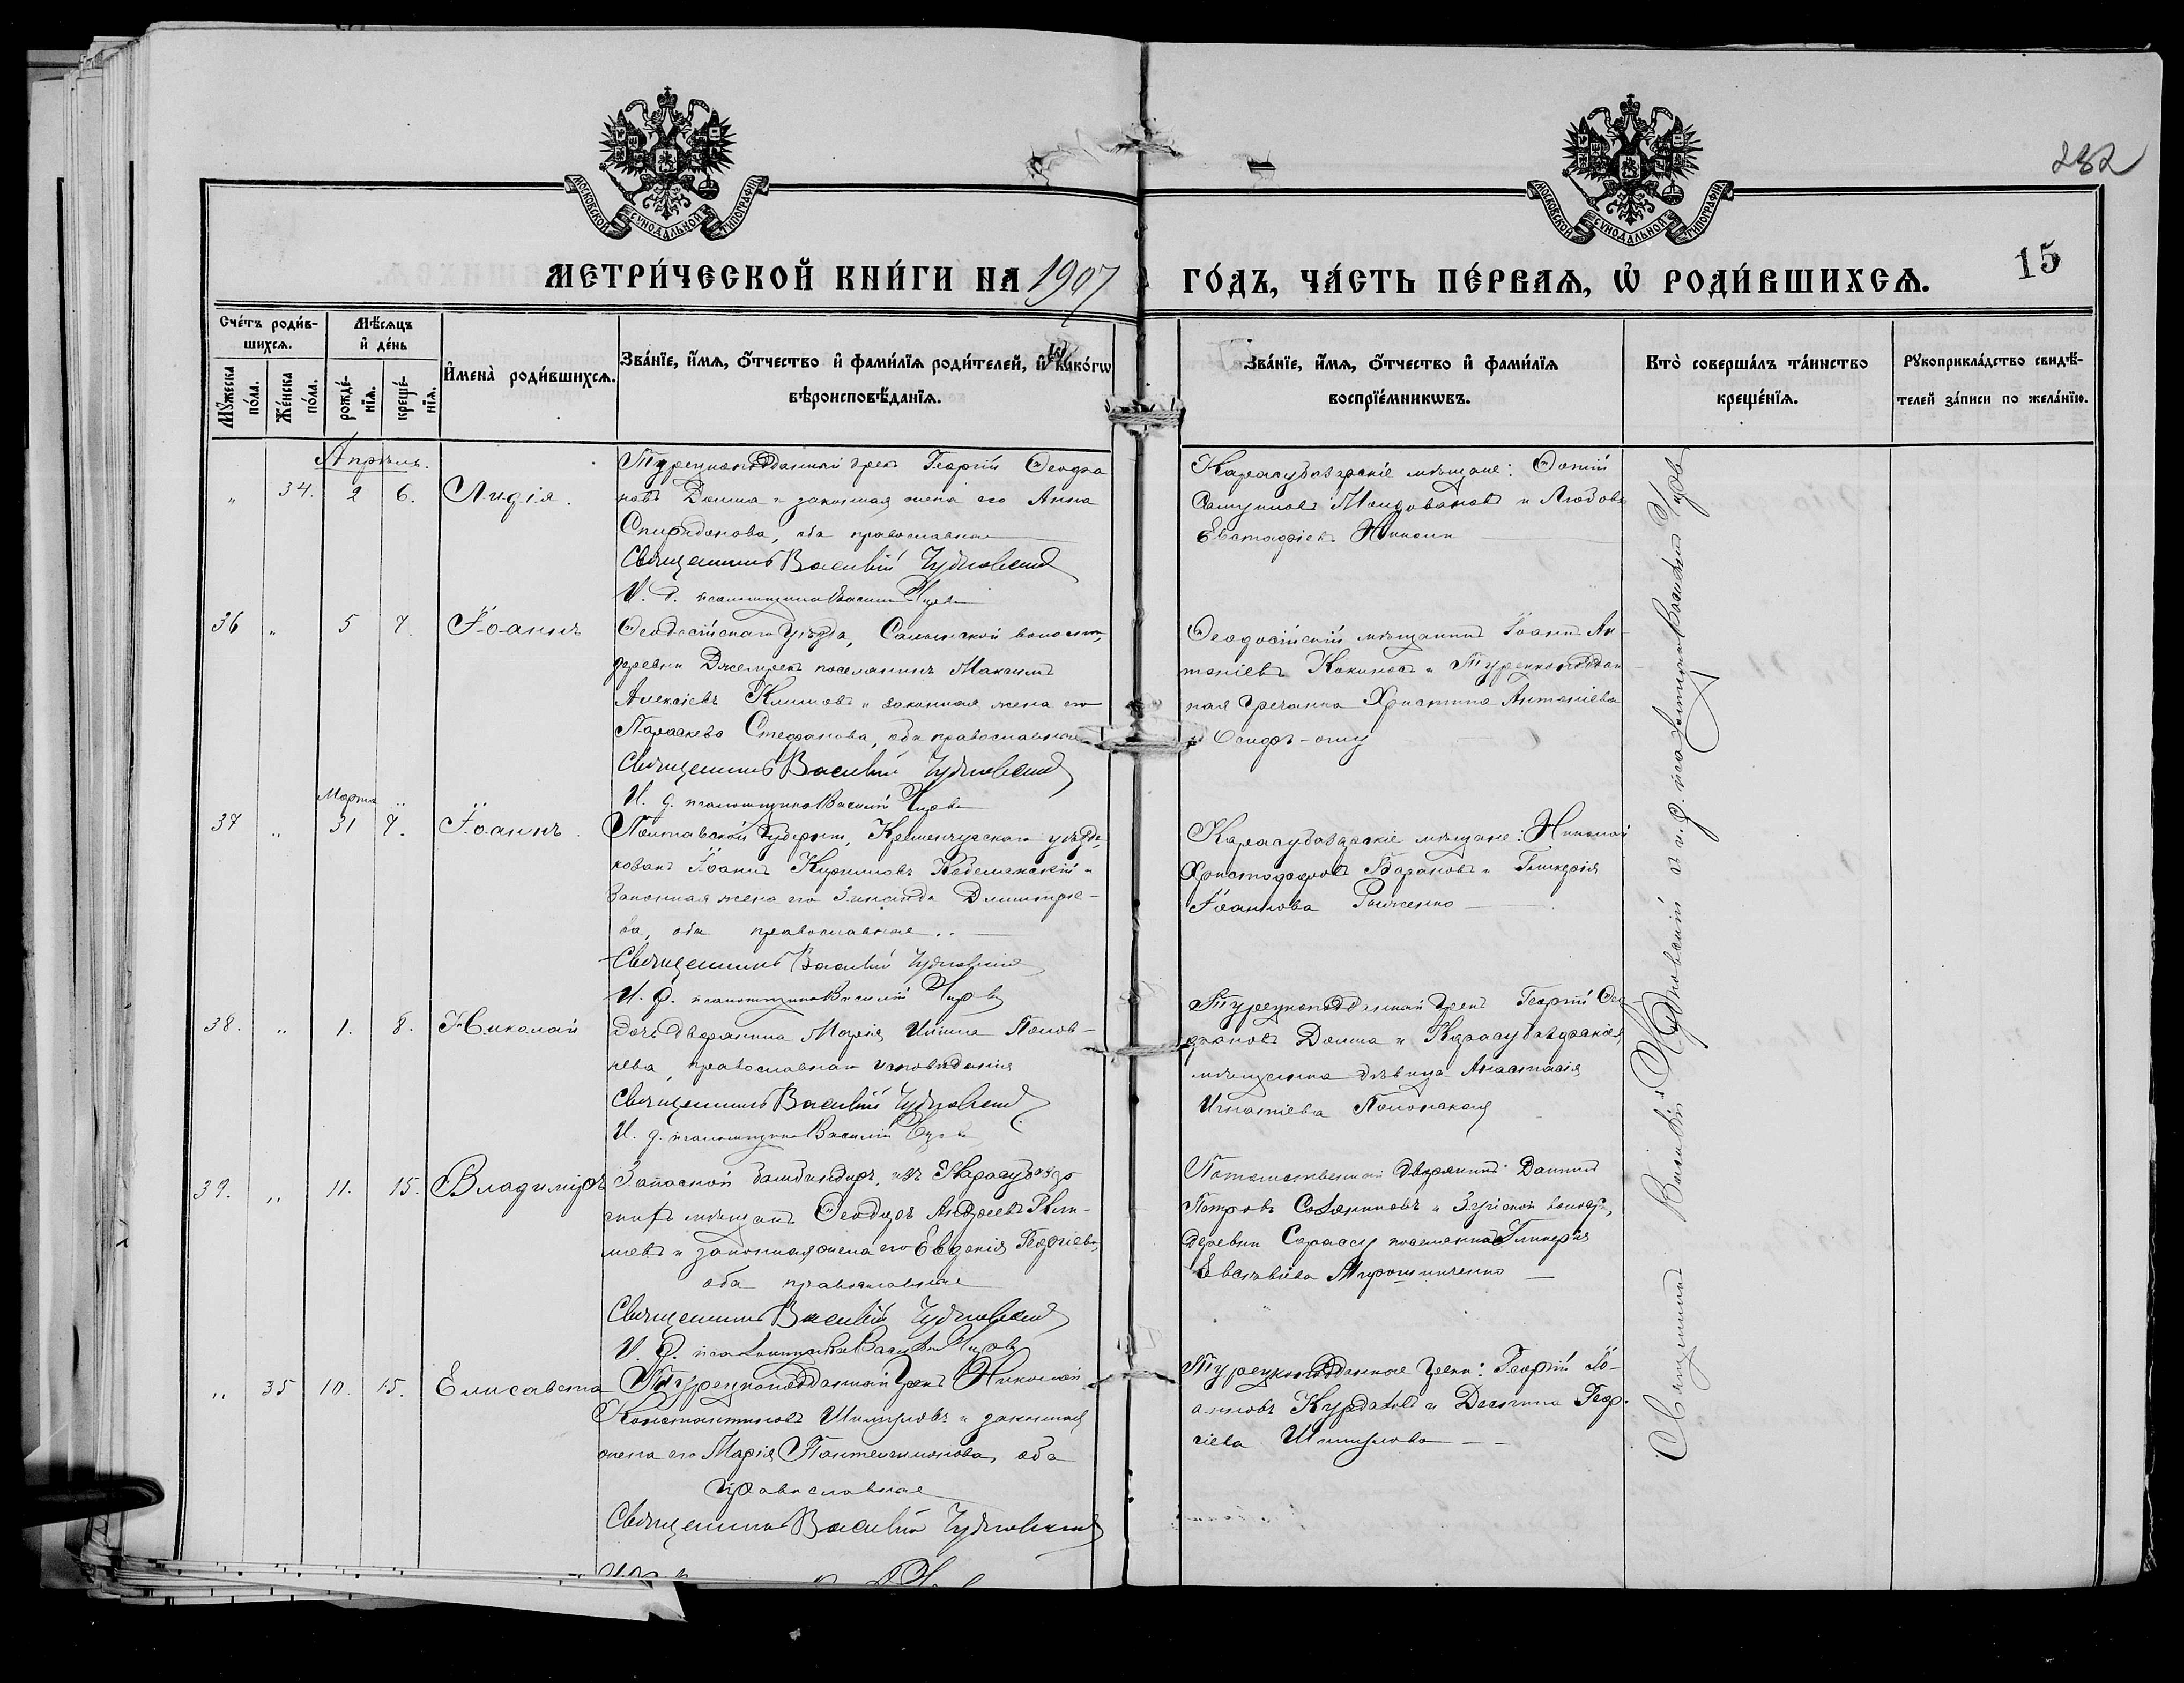 232
МОСКОВСКОЙ СѴНОДАЛЬНОЙ ТИПОГРАФІИ
МОСКОВСКОЙ СѴНОДАЛЬНОЙ ТИПОГРАФІИ
МЕТРИ́ЧЕСКОЙ КНИ́ГИ НА 1907 ГО́ДЪ, ЧА́СТЬ ПЕ́РВАѦ, Ѡ҆ РОДИ́ВШИХСѦ.
15
Сче́тъ роди́в-
шихсѧ.
Мѣ́сѧцъ
и҆ де́нь
Мꙋ́жеска по́ла.
Же́нска по́ла.
рожде́-
нїѧ.
креще́-
нїѧ.
И҆мена̀ роди́вшихсѧ.
Зва́нїе, и҆́мѧ, ѻ҆́тчество и҆ фами́лїѧ роди́телей, и҆ како́гѡ
вѣроисповѣ́данїѧ.
Зва́нїе, и҆́мѧ, ѻ҆́тчество и҆ фами́лїѧ
воспрїе́мникѡвъ.
Кто̀ соверша́лъ та́инство
креще́нїѧ.
Рꙋкоприкла́дство свидѣ́-
телей за́писи по жела́нїю.
Апрѣль.
" 34. 2 6. Лидія.
Турецкоподданный грекъ Георгій Ѳеофа
новъ Домма и законная жена его Анна
Спиридонова, оба православные
Священникъ Василій Чудновскій
И. д. псаломщика Василій
Карасубазарскіе мѣщане: Фотій
и Любовь
Евстафіев
36 " 5 7. Іоаннъ
Ѳеодосійскаго уѣзда, Салынской волости,
деревни поселянинъ Максимъ
Алексіевъ Климовъ и законная жена его
Параскева Стефанова, оба православные
Священникъ Василій Чудновскій
И. д. псаломщика Василій
Ѳеодосійскій мѣщанинъ Іоаннъ Ан-
тоніевъ Кокиносъ и Турецкоподдан
ная гречанка Христина Антоніева
Осифъ-оглу
Марта
37 " 31 7. Іоаннъ.
Полтавской губерніи, Кременчугскаго уѣзда,
козакъ Іоаннъ Кириловъ и
законная жена его Зинаида Димитріе-
ва, оба православные.
Священникъ Василій Чудновскій
И. д. псаломщика Василій
Карасубазарскіе мѣщане: Николай
Христофоровъ Барановъ и Гликерія
Іоаннова
38. " 1. 8. Николай
Дочь дворянина Марія
православнаго исповѣданія
Священникъ Василій Чудновскій
И. д. псаломщика Василій
Турецкоподданный Грекъ Георгій Ѳео
фановъ Домма и Карасубазарская
мѣщанка дѣвица Анастасія
Игнатіева Полонская
39. " 11. 15. Владиміръ
Запасной изъ Карасубазар
скихъ мѣщанъ Ѳеодоръ Андреевъ
и законная жена его Евгенія Георгіева,
оба православные
Священникъ Василій Чудновскій
И. д. псаломщика Василій
Потомственный дворянинъ Даніилъ
Петровъ и Зуйской волости,
деревни Сарассу поселянка Гликерія
Мирошниченко
" 35 10. 15. Елисавета
Турецкоподданный Грекъ Николай
Константиновъ и законная
жена его Марія Пантелеимонова, оба
православные
Священникъ Василій Чудновскій
Турецкоподданные Греки: Георгій Іо-
анновъ и Деспина Геор-
гіева
Священникъ Василій Чудновскій и и. д. псаломщика Василій